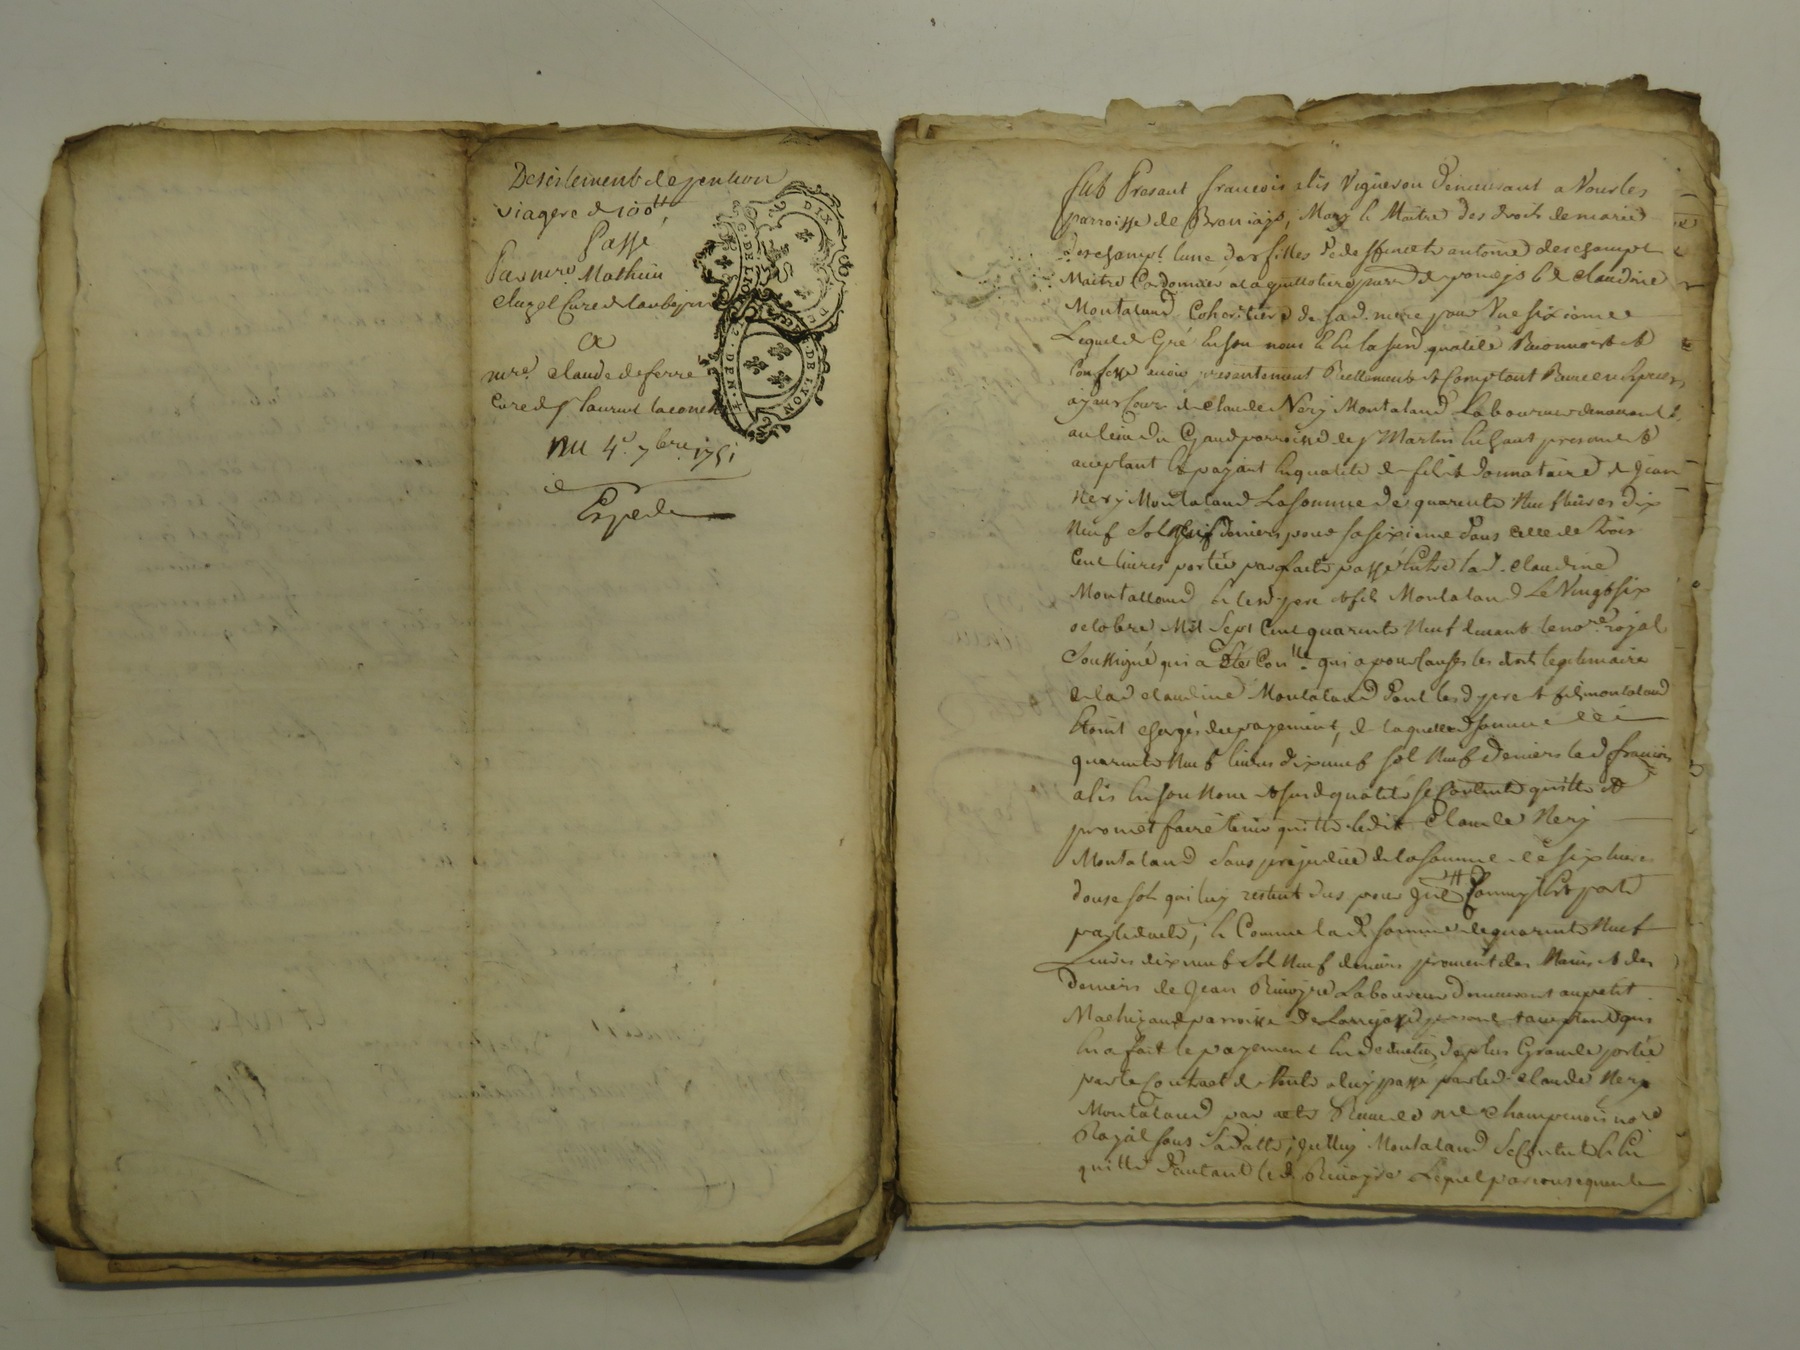 Desistement de pention
viagere de 100ᵗᵗ
Passé
Par mre. Mathieu
Cluzel Curé de
a
mre. claude deferre
Curé de st. laurent
Du 4e. 7bre. 1751
Expedié
DIX DEN.
G. DE LYON
Fut Present francois alis Vigneron demeurant a Vourles
parroisse de Mary & Maitre des droits de marie
deschampt lune des filles de deffunct antoine deschampt
Maitre Cordonnier a la guillotiere & de claudine
Montaland Coheritiere de sad. mere pour Une sixieme
Lequel de Gré en son nom & en lasusd. qualité Reconnoist &
Confesse avoir presentement Reellement & Comptant Receu en Especes
ayant Cours de claude Nery Montaland Laboureur demeurant
au lieu du parroisse de st Martin en haut present &
aceptant & payant en qualité de fils & donnataire de Jean
nery Montaland La somme de quarante Neuf livres dix
Neuf Sols Neuf deniers pour sa sixieme dans celle de Trois
Cent livres portée par lacte passé Entre lad. claudine
Montaland & lesd. pere & fils Montaland Le Vingt six
octobre Mil Sept Cent quarante Neuf devant le nore. royal
Soussigné qui a Eté Conlle. qui a pour Causes les droits legitimaire
de lad. claudine Montaland dont lesd. pere & fils montaland
Etoint chargés du payement, de laquelle d. somme de
quarante Neuf livres dix neuf sol Neuf deniers led. francois
alis en son Nom & susd. qualité se Contente quitte &
promet faire tenir quitte ledit Claude Nery
Montaland Sans prejudice de la somme de six livres
douse sols qui luy restent dus pour
par led. acte, & Comme lad. somme de quarante Neuf
Livres dix neuf Sol Neuf deniers provient des Mains & des
deniers de Jean Laboureur demeurant au petit
parroisse De present & aceptant qui
en a fait le payement en deduction de plus Grande portée
par le Contract de Vente a luy passé par led. claude Nery
Montaland par acte Receu de me. champenois nore.
Royal sous Sa datte, Montaland se Contente & En
quitte d'autant led. Lequel par consequent